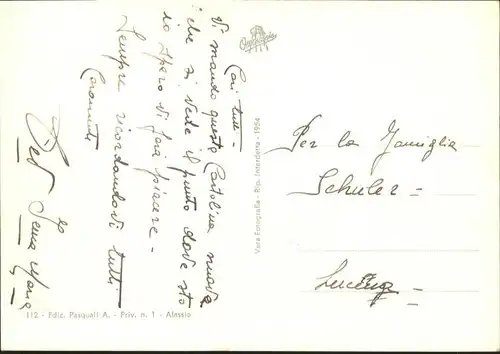 Cari tutti -
Vi mando questa Cartolina nuova
che si vede il punto dove sto
io spero di farvi piacere -
Sempre ricordandovi tutti
Caramente
Per la Famiglia
Schuler -
Vera Fotografia - Rip. Interdetta - 1954
112 - Ediz. Pasquali A. - Priv. n. 1 - Alassio